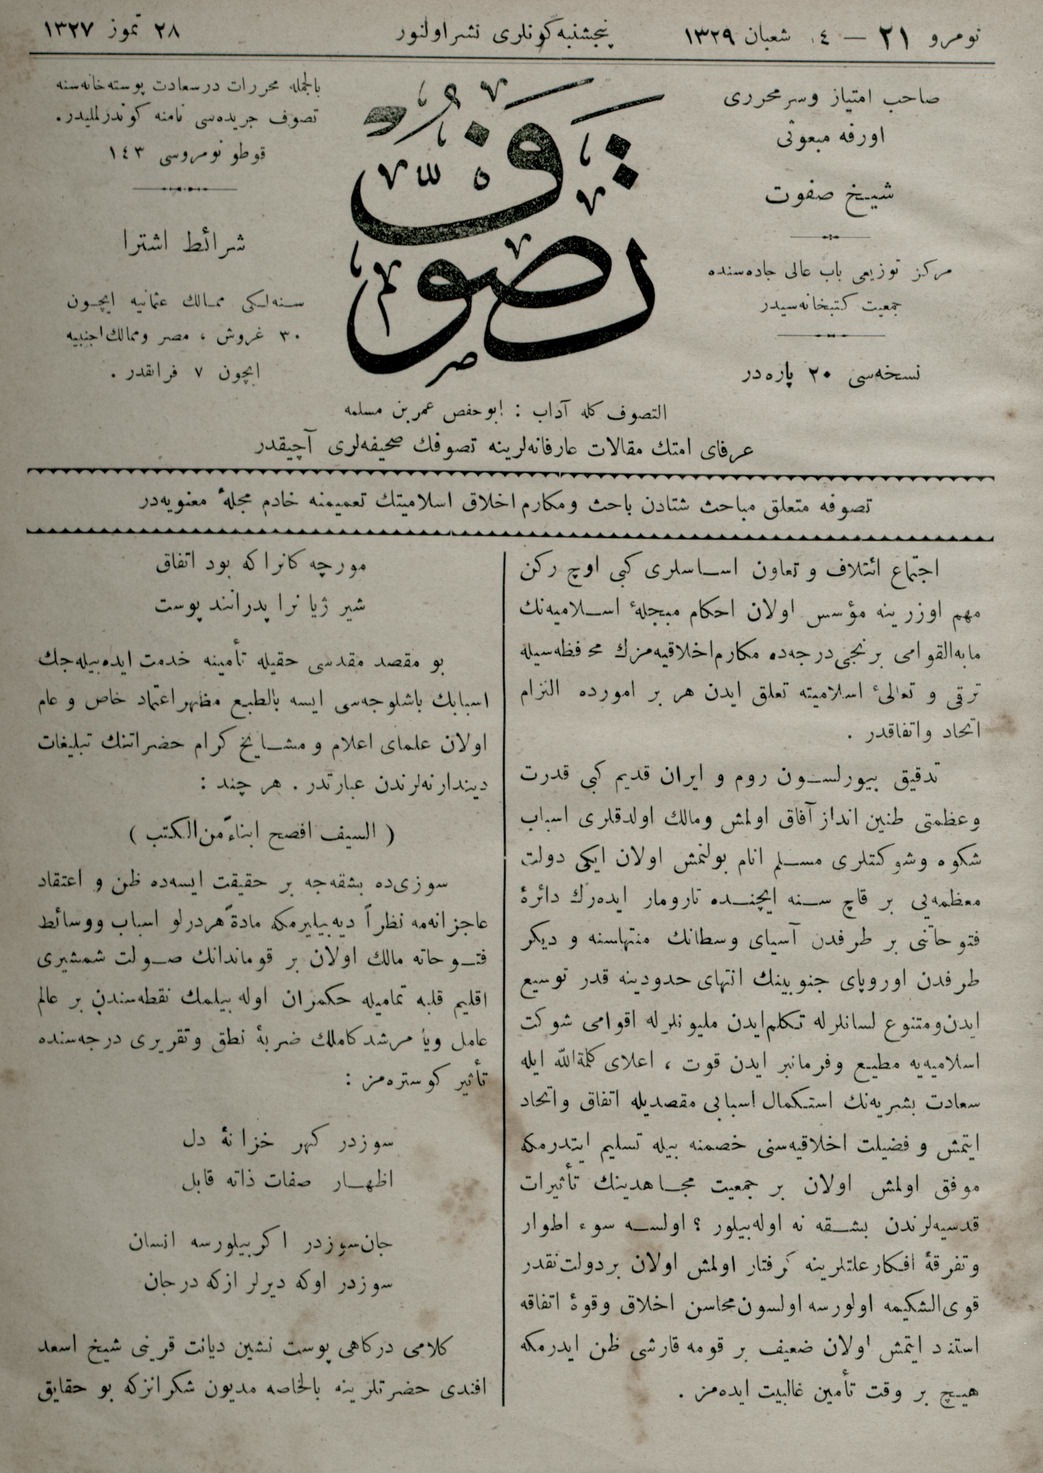 نومرو ٢١ — ٤ شعبان ١٣٢٩
پنجشنبه كونلری نشر اولنور
٢٨ تموز ١٣٢٧
صاحب امتياز وسر محرری
اورفه مبعوثی
شيخ صفوت
مركز توزيعی باب عالی جاده‌سنده
جمعيت كتبخانه‌سيدر
نسخه‌سی ٢٠ پاره‌در
تصوف
بالجمله محررات درسعادت پوسته‌خانه‌سنه
تصوف جريده‌سی نامنه كوندرلمليدر.
قوطو نومروسی ١٤٣
شرائط اشترا
سنه‌لكی ممالك عثمانيه ايچون
٣٠ غروش ، مصر وممالك اجنبيه
ايچون ٧ فرانقدر .
التصوف كله آداب : ابو حفص عمر بن مسلمه
عرفای امتك مقالات عارفانه‌لرينه تصوفك صحيفه‌لری آچيقدر
تصوفه متعلق مباحث شتادن باحث ومكارم اخلاق اسلاميتك تعميمنه خادم مجلۀ معنويه‌در
اجتماع ائتلاف و تعاون اساسلری كبی اوچ ركن
مهم اوزرينه مؤسس اولان احكام مبجلۀ اسلاميه‌نك
مابه‌القوامی برنجی درجه‌ده مكارم اخلاقيه‌مزك محافظه‌سيله
ترقی و تعالیٔ اسلاميته تعلق ايدن هر بر امورده التزام
اتحاد واتفاقدر .
تدقيق بيورلسون روم و ايران قديم كبی قدرت
وعظمتی طنين انداز آفاق اولمش ومالك اولدقلری اسباب
شكوه وشوكتلری مسلم انام بولنمش اولان ايكی دولت
معظمه‌يی بر قاچ سنه ايچنده تارومار ايده‌رك دائرۀ
فتوحاتنی بر طرفدن آسيای وسطانك منتهاسنه و ديكر
طرفدن اوروپای جنوبينك انتهای حدودينه قدر توسيع
ايدن ومتنوع لسانلرله تكلم ايدن مليونلرله اقوامی شوكت
اسلاميه‌يه مطيع وفرمانبر ايدن قوت ، اعلای كلمةالله ايله
سعادت بشريه‌نك استكمال اسبابی مقصديله اتفاق واتحاد
ايتمش و فضيلت اخلاقيه‌سنی خصمنه بيله تسليم ايتدرمكه
موفق اولمش اولان بر جمعيت مجاهدينك تأثيرات
قدسيه‌لرندن بشقه نه اوله‌بيلور ؟ اولسه سوء اطوار
وتفرقۀ افكار علتلرينه گرفتار اولمش اولان بر دولت نقدر
قوی‌الشكيمه اولورسه اولسون محاسن اخلاق وقوۀ اتفاقه
استناد ايتمش اولان ضعيف بر قومه قارشی ظن ايدرمكه
هيچ بر وقت تأمين غالبيت ايده‌مز .
مورچه كانرا كه بود اتفاق
شير ژيانرا بدرانند پوست
بو مقصد مقدسی حقيله تأمينه خدمت ايده‌بيله‌جك
اسبابك باشلوجه‌سی ايسه بالطبع مظهر اعتماد خاص و عام
اولان علمای اعلام و مشايخ كرام حضراتنك تبليغات
ديندارنه‌لرندن عبارتدر . هر چند :
( السيف افصح ابناءً من‌الكتب )
سوزی‌ده بشقه‌جه بر حقيقت ايسه‌ده ظن و اعتقاد
عاجزانه‌مه نظراً ديه‌بيليرمكه مادةً هر درلو اسباب ووسائط
فتوحاته مالك اولان بر قوماندانك صولت شمشيری
اقليم قلبه تماميله حكمران اوله بيلمك نقطه‌سندن بر عالم
عامل ويا مرشد كاملك ضربۀ نطق وتقريری درجه‌سنده
تأثير كوستره‌مز :
سوزدر گهر خزانۀ دل
اظهار صفات ذاته قابل
جان‌سوزدر اكر بيلورسه انسان
سوزدر اوكه ديرلر ازكه درجان
كلامی دركاهی پوست نشين ديانت قرينی شيخ اسعد
افندی حضرتلرينه بالخاصه مديون شكرانزكه بو حقايق